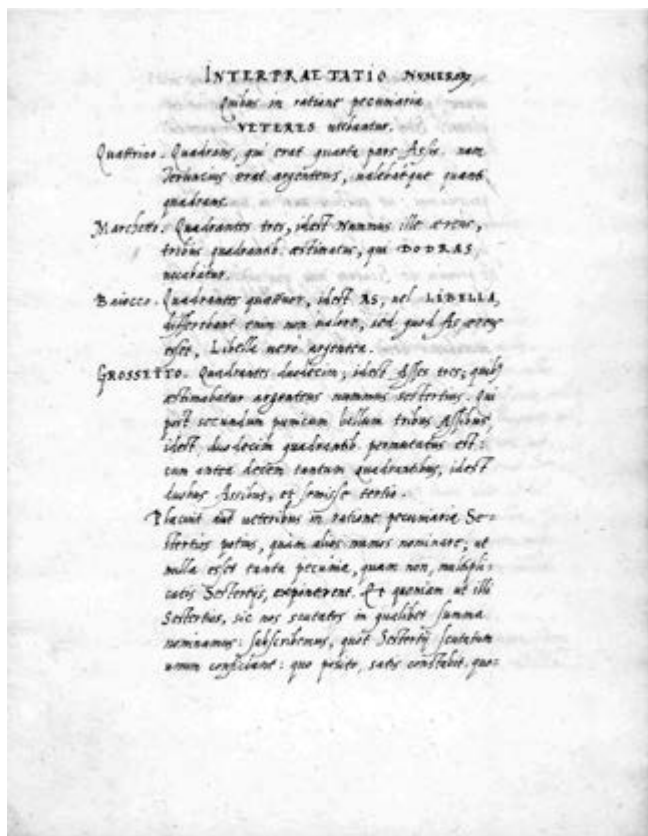 INTERPRAETATIO NUMERORUM
Quibus in ratione pecuniaria
VETERES utebantur.
Quattrino. Quadrans, qui erat quarta pars Assis. nam
Teruncius erat argenteus, ualebatque quanti
quadrans.
Marchetto. Quadrantes tres, idest Nummus ille aereus,
tribus quadrantib. aestimatus, qui DODRAS,
uocabatur.
Baiocco. Quadrantes quattuor, idest AS, uel LIBELLA,
differebant enim non ualore, sed quod As aereus
esset, Libella uero argentea.
GROSSETTO. Quadrantes duodecim, idest Asses tres, quib;
aestimabatur argenteus nummus sestertius. qui
post secundum punicum bellum tribus Assibus,
idest duodecim quadrantib. permutatus est:
cum antea decem tantum quadrantibus, idest
duobus Assibus, et semisse tertio.
Placuit aut ueteribus in ratione pecuniaria Se-
stertios potius, quàm alios numos nominare, ut
nulla esset tanta pecunia, quam non, multipli-
catis Sestertijs, exponerent. Et quoniam ut illi
Sestertios, sic nos scutatos in qualibet summa
nominamus: subscribemus, quot Sestertij scutatum
unum conficiant: quo posito, satis constabit. quo-